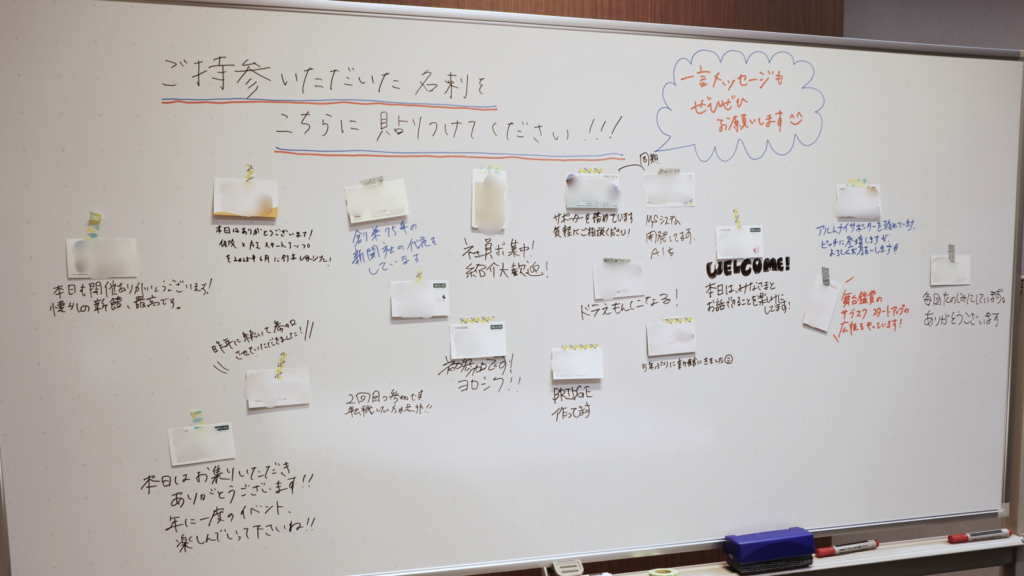 ご持参いただいた名刺を
こちらに貼りつけてください!!!
一言メッセージも
ぜひぜひ
お願いします
本日も開催ありがとうございます!
懐かしの新館、最高です。
本日はありがとうございます!
創業75年の
新聞社の代表を
しています
社員お集中!
紹介大歓迎!
サポーターを務めています
気軽にご相談ください!
同期
MFシステム
開発してます。
AIも
WELCOME!
本日はみなさまと
お話できることを楽しみに
してます!
アルムナイサポーターを務めています。
ピッチに登壇しますが、
よろしくお願いします!!
舞台鑑賞の
サブスクスタートアップの
広報をやっています!
各回たのしみにしています。
ありがとうございます
ドラえもんになる!
昨年に続いて参加
させていただきました!
初参加です!
ヨロシク!!
2回目の参加です
BRIDGE
作ってます
本日はお集りいただき
ありがとうございます!!
年に一度のイベント、
楽しんでらって下さいね!!